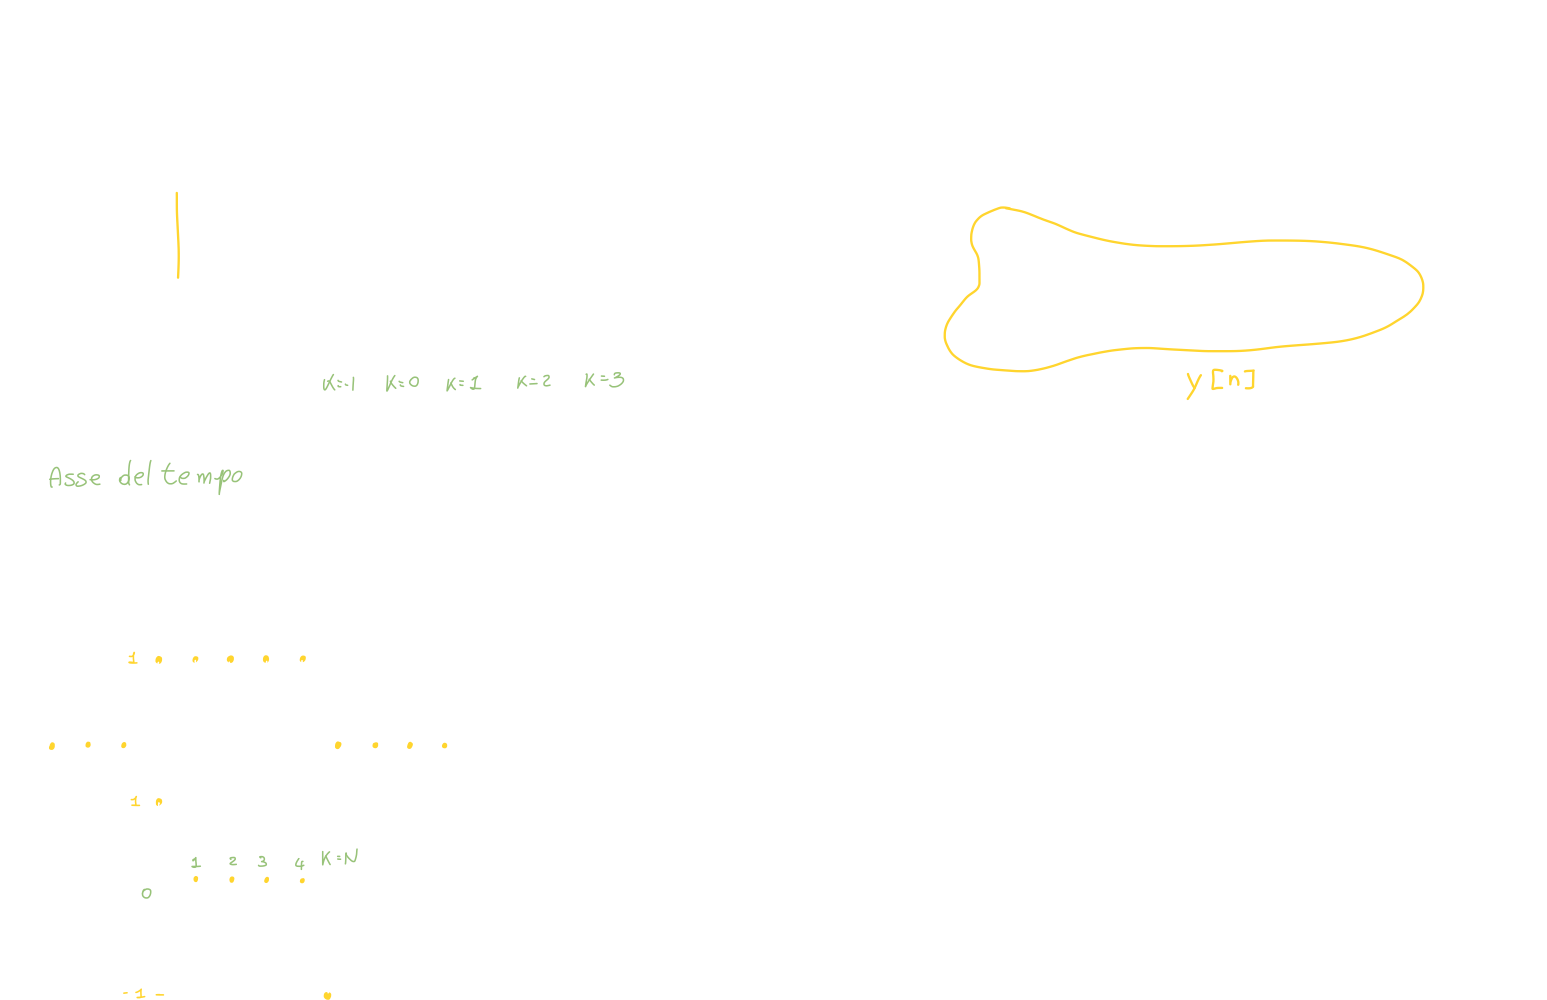 K=-1 K=0 K=1 K=2 K=3
y[n]
Asse del tempo
1
1
1 2 3 4 K=N
0
-1